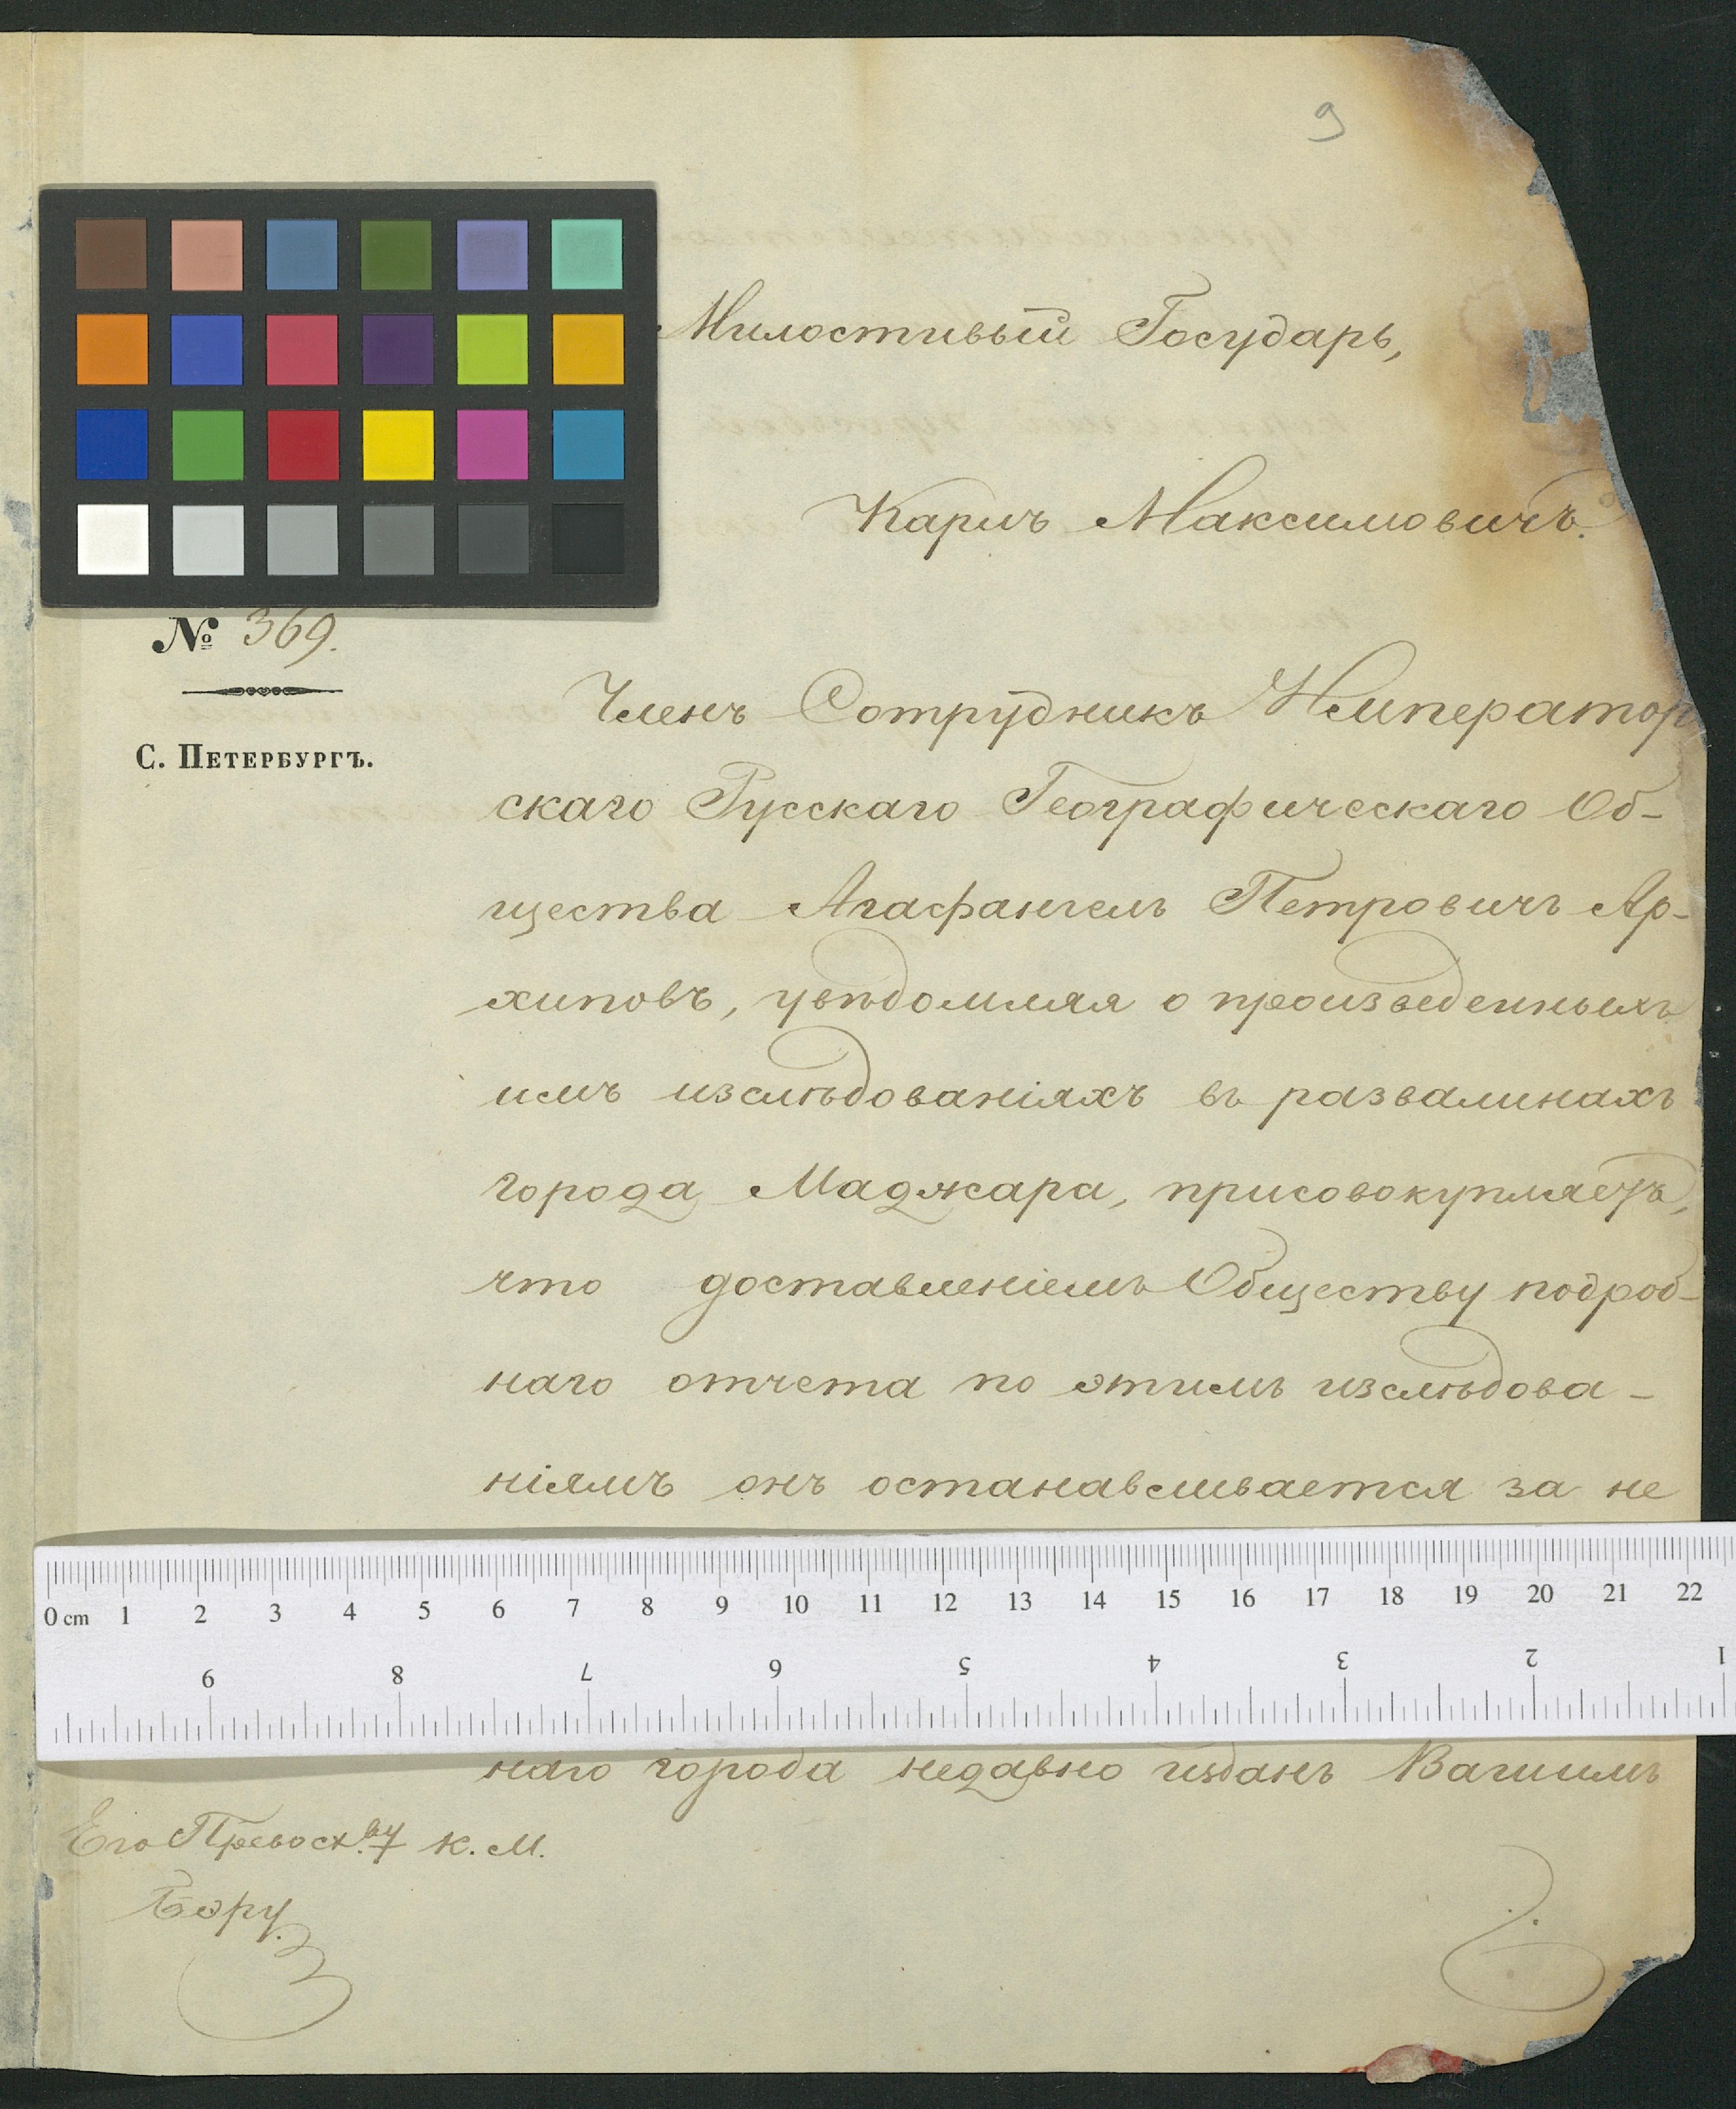 9
Милостивый Государь,
Карлъ Максимовичъ.
№ 369.
С. Петербургъ.
Членъ Сотрудникъ Император
скаго Русскаго Географическаго Об-
щества Агафангелъ Петровичъ Ар-
хиповъ, увѣдомляя о произведенныхъ
имъ изслѣдованіяхъ въ развалинахъ
города Маджара, присовокупляетъ,
что доставленіемъ Обществу подроб-
наго отчета по этимъ изслѣдова-
ніямъ онъ останавливается за не
0 cm 1 2 3 4 5 6 7 8 9 10 11 12 13 14 15 16 17 18 19 20 21 22
9 8 7 6 5 4 3 2 1
наго города недавно изданъ Вашимъ
Его Превосх.ву К. М.
Бэру.